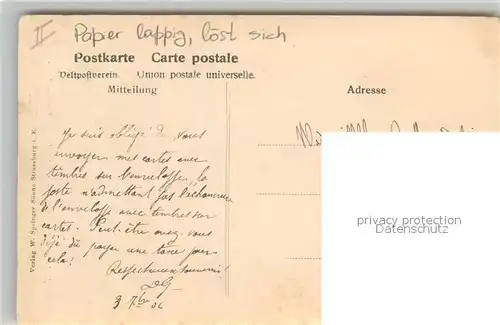 II Papier lappig, löst sich
Postkarte Carte postale
Weltpostverein. Union postale universelle.
Mitteilung
Adresse
Verlag W. Springer Söhne Strassburg i. E.
Je suis obligé de vous
envoyer mes cartes avec
timbres sur l'enveloppe, la
poste n'admettant pas l'échancrure
de l'enveloppe avec timbres sur
cartes. Peut-être avez vous
déjà dû payer une taxe pour
cela!
Respectueux souvenirs!
DG
3 7bre 06
privacy protection
Datenschutz